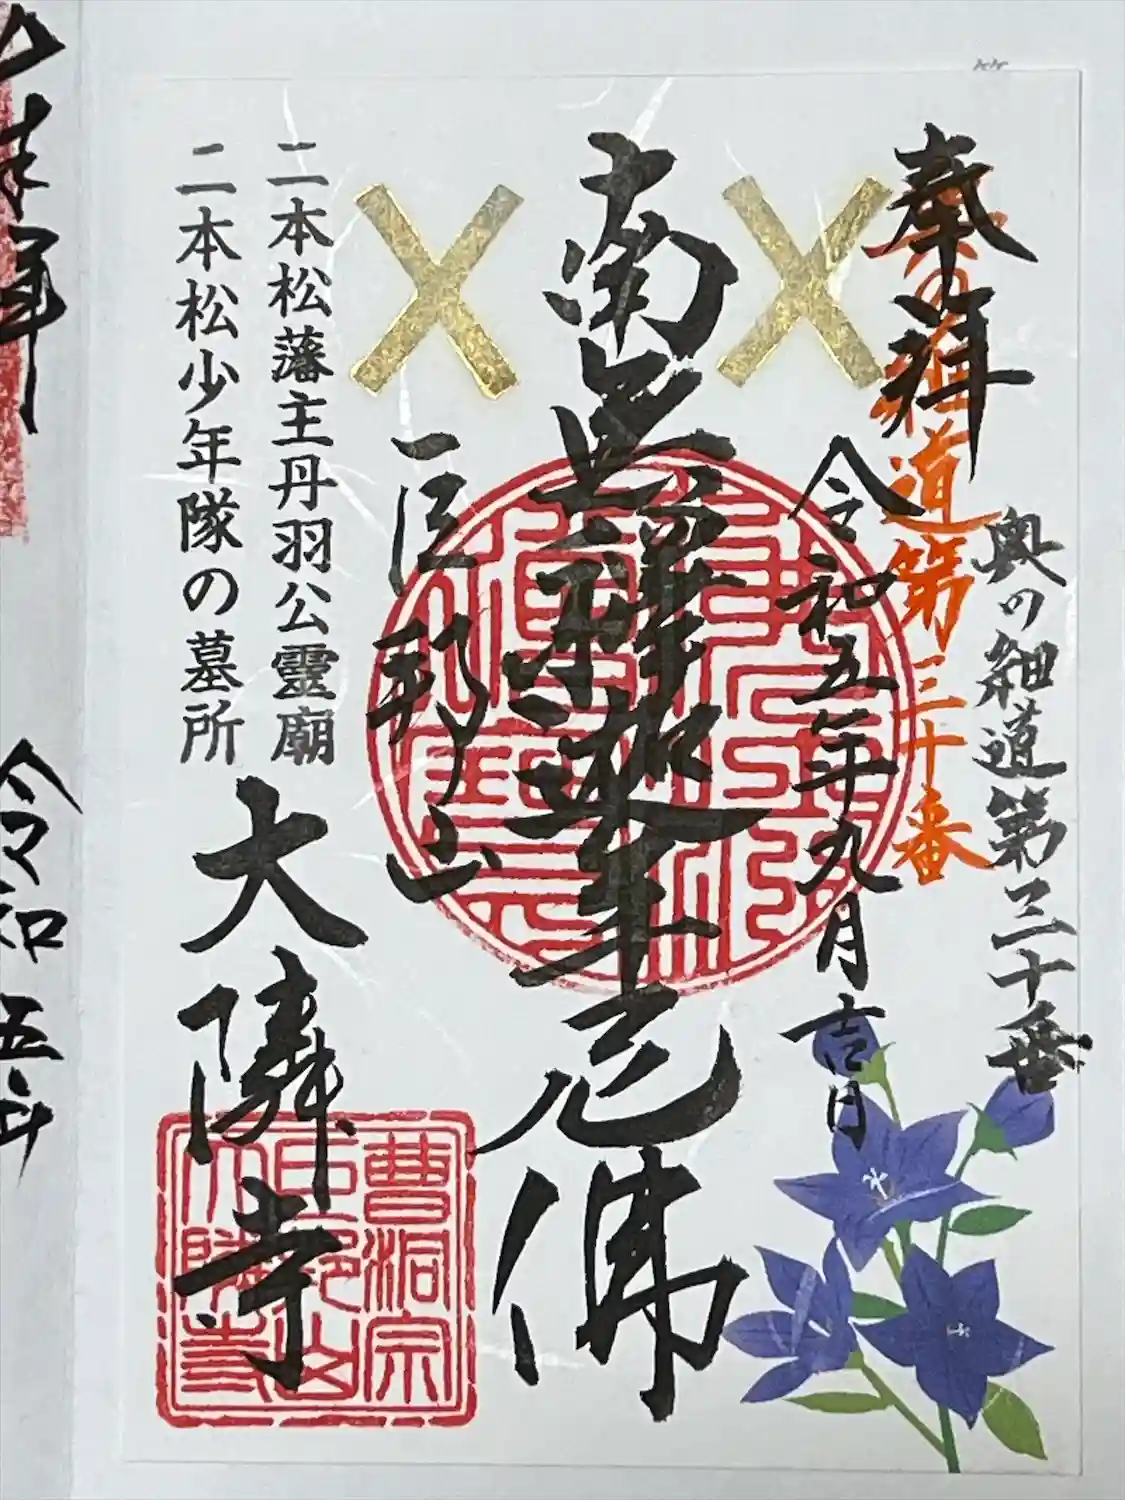 奉拝
奥の細道第三十番
奥の細道第三十番
令和五年九月吉日
南無釋迦牟尼佛
巨邦山
二本松藩主丹羽公霊廟
二本松少年隊の墓所
大隣寺
曹洞宗
巨邦山
大隣寺
奉拝
令和五年